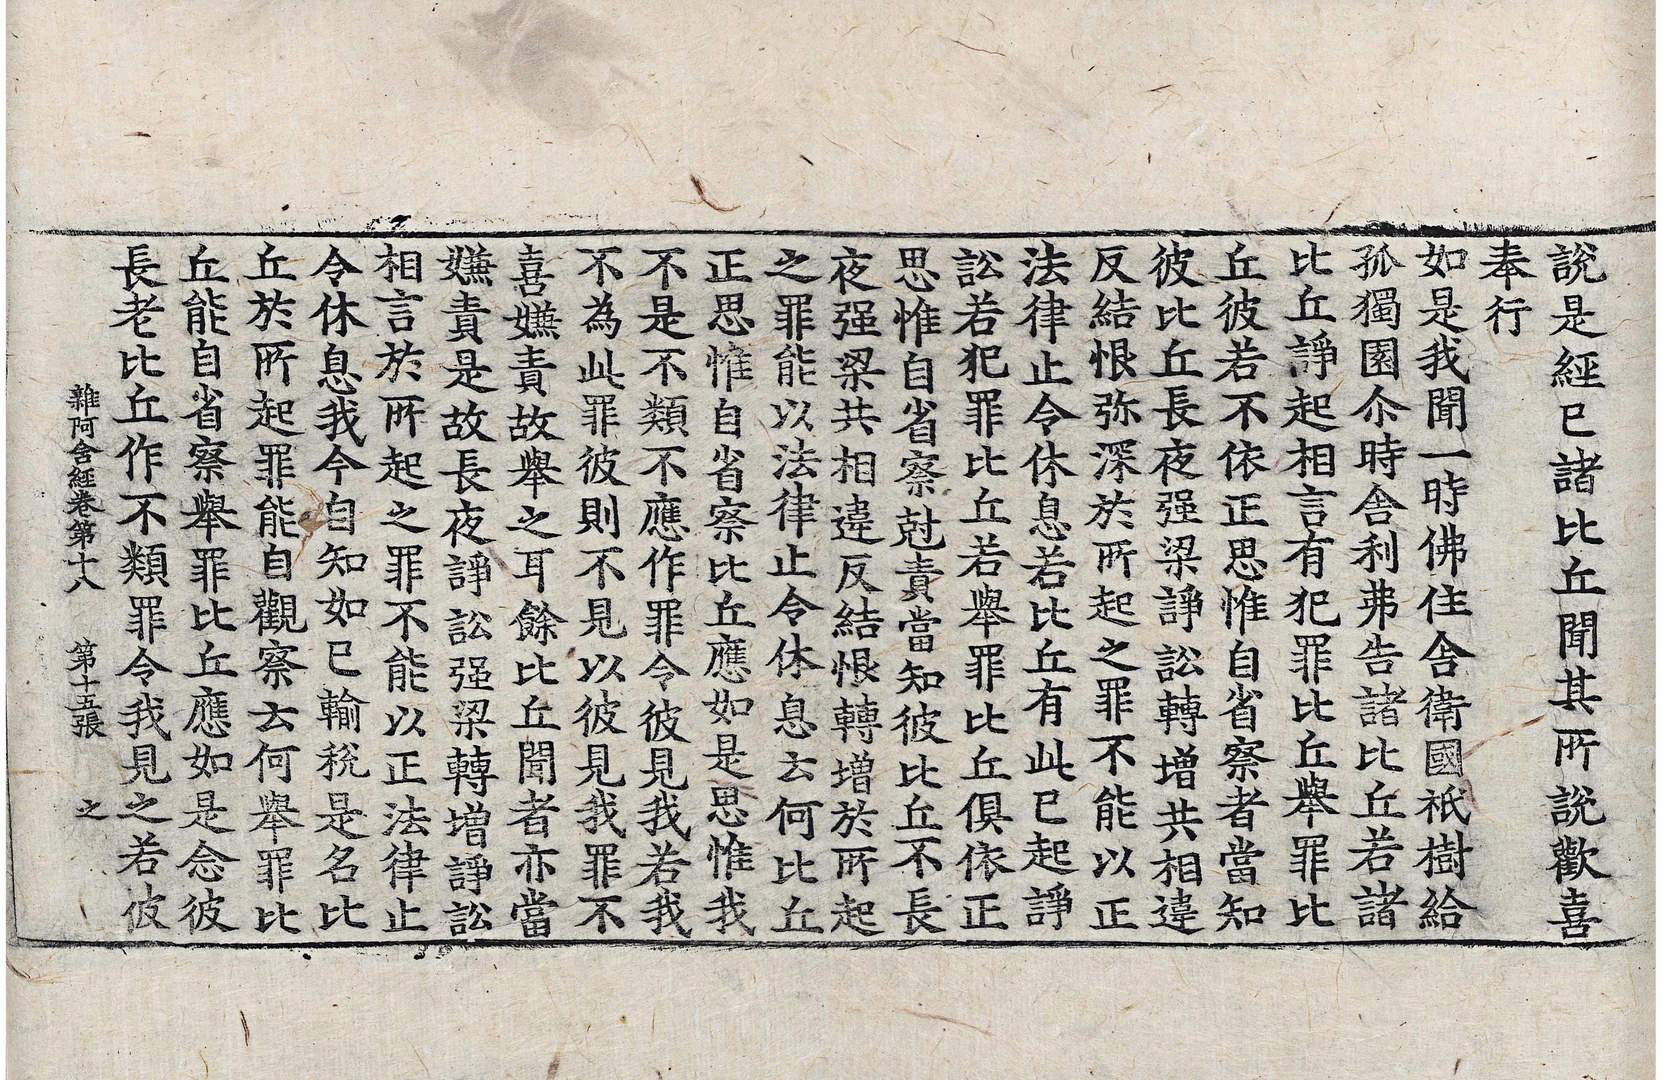 說是經已諸比丘聞其所說歡喜
奉行
如是我聞一時佛住舍衛國祇樹給
孤獨園尒時舍利弗告諸比丘若諸
比丘諍起相言有犯罪比丘舉罪比
丘彼若不依正思惟自省察者當知
彼比丘長夜强梁諍訟轉增共相違
反結恨弥深於所起之罪不能以正
法律止令休息若比丘有此已起諍
訟若犯罪比丘若舉罪比丘俱依正
思惟自省察尅責當知彼比丘不長
夜强梁共相違反結恨轉增於所起
之罪能以法律止令休息云何比丘
正思惟自省察比丘應如是思惟我
不是不類不應作罪令彼見我若我
不為此罪彼則不見以彼見我罪不
喜嫌責故舉之耳餘比丘聞者亦當
嫌責是故長夜諍訟强梁轉增諍訟
相言於所起之罪不能以正法律止
令休息我今自知如已輸稅是名比
丘於所起罪能自觀察云何舉罪比
丘能自省察舉罪比丘應如是念彼
長老比丘作不類罪令我見之若彼
雜阿含經卷第十八 第十五張 之